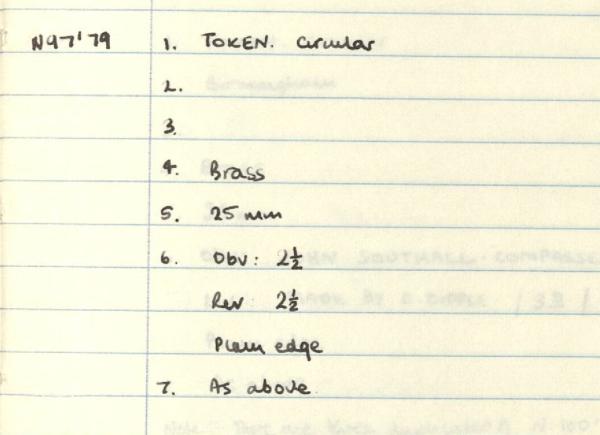 N97'79 1. TOKEN. Circular
2.
3.
4. Brass
5. 25 mm
6. Obv: 2½
Rev 2½
Plain edge
7. As above.